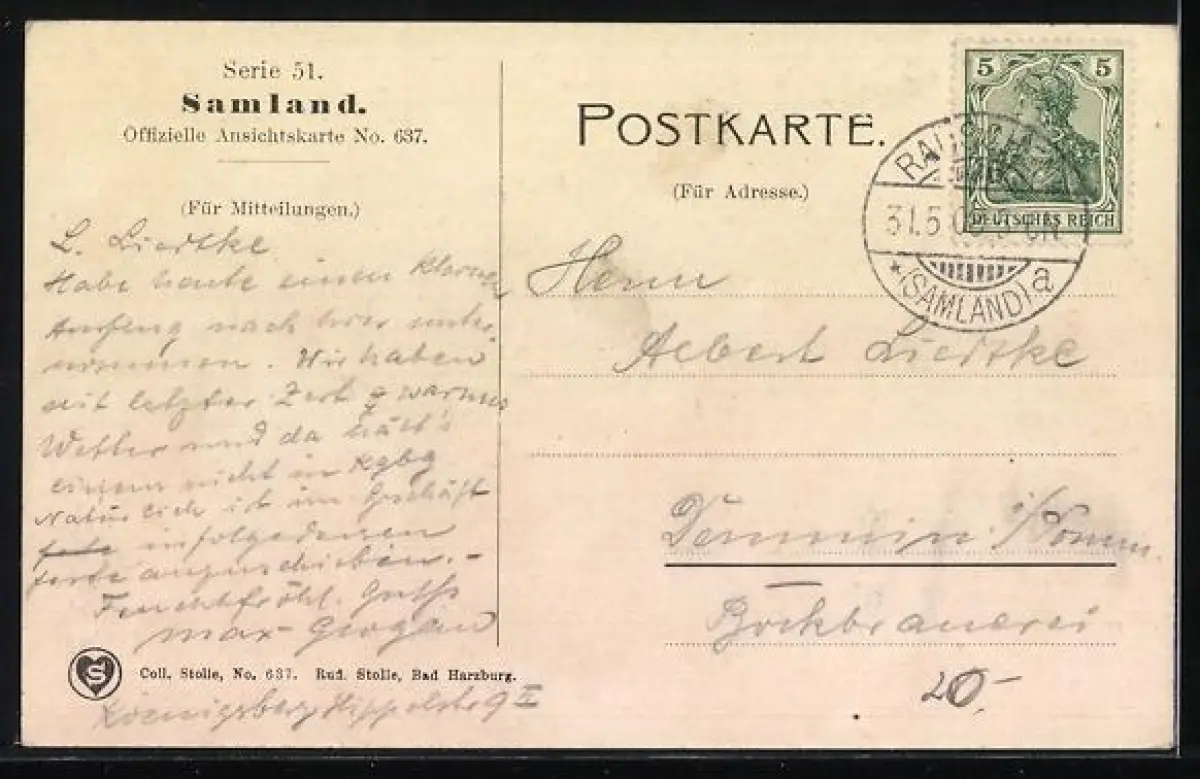 Serie 51.
Samland.
Offizielle Ansichtskarte No. 637.
(Für Mitteilungen.)
L. Liedtke
Habe heute einen kleinen
Ausflug nach hier unter
nommen. Wir haben
seit letzter Zeit warmes
Wetter und da hält's
einem nicht in Kgbg
Natürlich ist im Geschäft
infolgedessen
angeschrieben. -
Feuchtfröhl. Gruß
Max
Coll. Stolle, No. 637. Rud. Stolle, Bad Harzburg.
S
Koenigsberg Hippelstr 9 II
POSTKARTE.
(Für Adresse.)
5 5
DEUTSCHES REICH
31.5
* (SAMLAND) a
Herrn
Albert Liedtke
Demmin i/Pomm.
Bockbrauerei
20.-